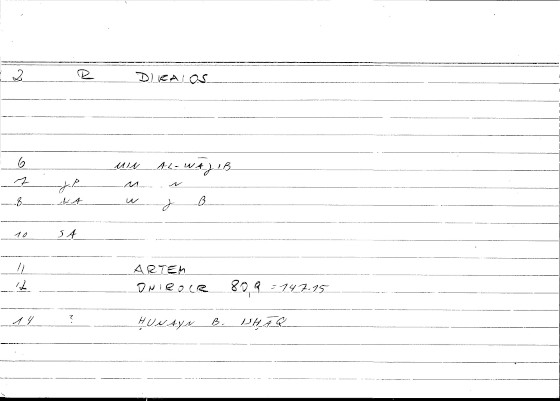 2 R DIKAIOS
6 MIN AL-WĀJIB
7 JP M N
8 NA W J B
10 SA
11 ARTEM
12 ONIROCR 80,9 = 147.15
14 ? ḤUNAYN B. ISḤĀQ